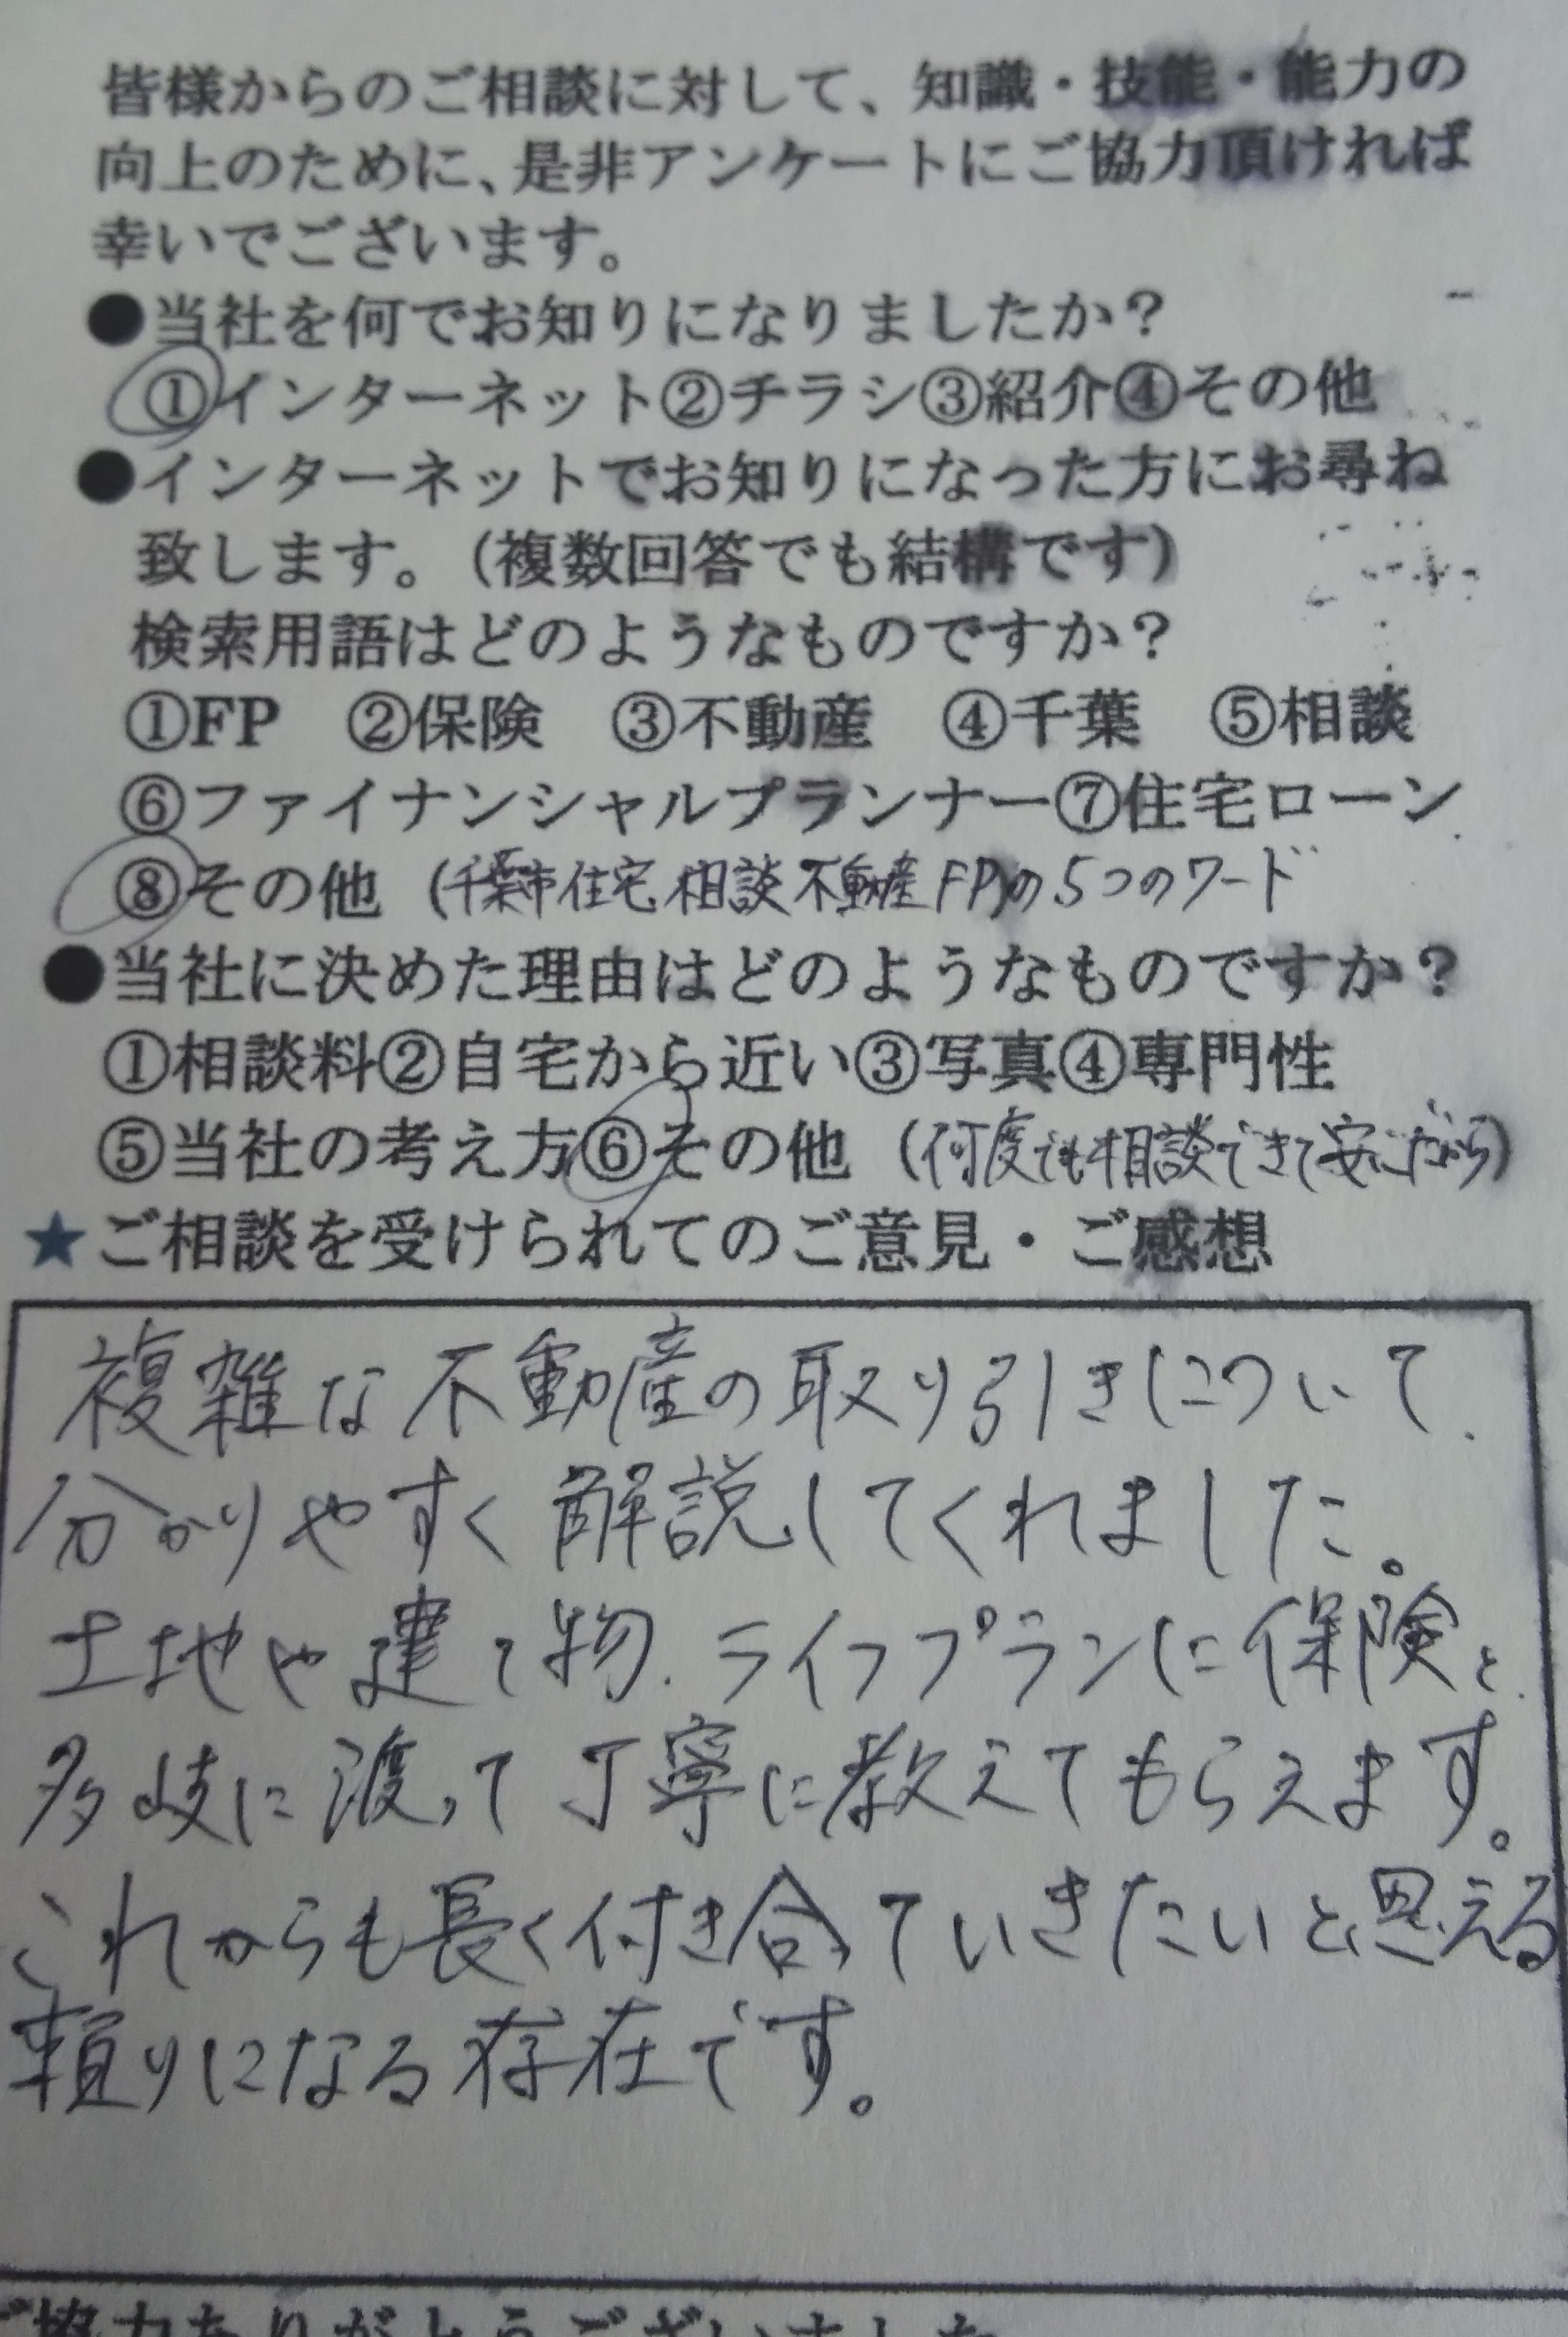 皆様からのご相談に対して、知識・技能・能力の
向上のために、是非アンケートにご協力頂ければ
幸いでございます。
●当社を何でお知りになりましたか？
①インターネット②チラシ③紹介④その他
●インターネットでお知りになった方にお尋ね
致します。（複数回答でも結構です）
検索用語はどのようなものですか？
①FP ②保険 ③不動産 ④千葉 ⑤相談
⑥ファイナンシャルプランナー⑦住宅ローン
⑧その他（千葉市 住宅 相談 不動産 FP)の5つのワード
●当社に決めた理由はどのようなものですか？
①相談料②自宅から近い③写真④専門性
⑤当社の考え方⑥その他（何度でも相談できて安心だから）
★ご相談を受けられてのご意見・ご感想
複雑な不動産の取り引きについて、
分かりやすく解説してくれました。
土地や建て物、ライフプランに保険と、
多岐に渡って丁寧に教えてもらえます。
これからも長く付き合っていきたいと思える
頼りになる存在です。
ご協力ありがとうございました